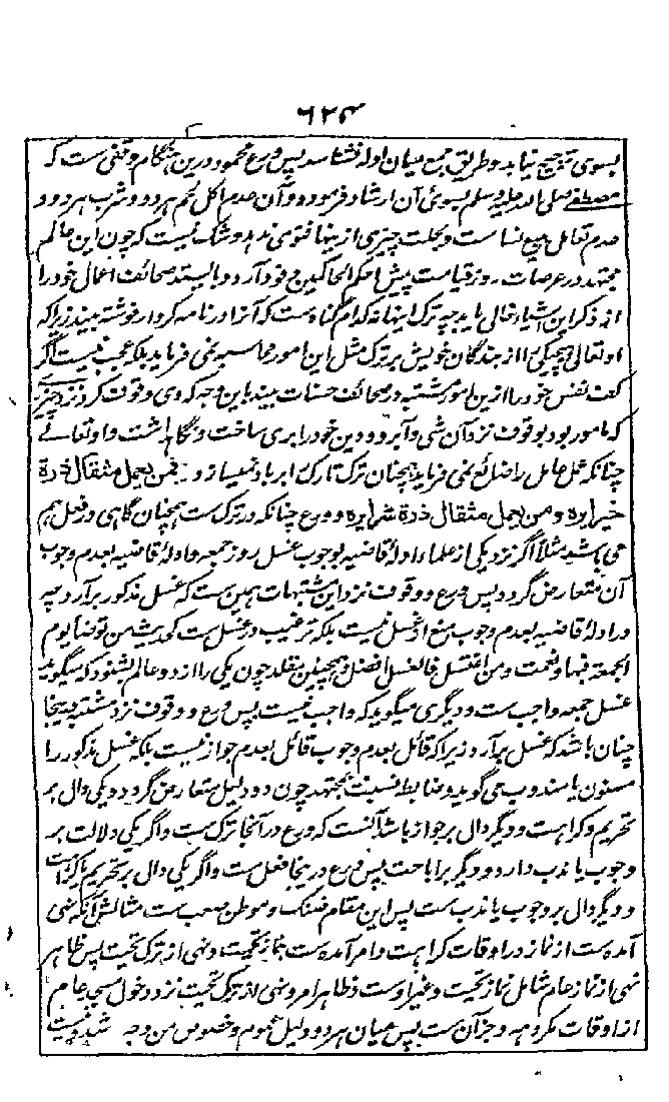 ۶۲۴
بسوی ترجیح نیابد و طریق جمع میان ادله نشناسد پس ورع محمود درین هنگام وقفی ست که
مصطفی صلی الله علیه وسلم بسوی آن ارشاد فرموده و آن عدم اکل لحم هر دو و شرب هر دو و
عدم تعامل ببیع نسا ست و بحلت چیزی ازینها فتوی ندهد و شک نیست که چون این عالم
مجتهد در عرصات روز قیامت پیش احکم الحاکمین فرود آرد و بایستد صحائف اعمال خود را
از ذکر این اشیاء خالی یابد چه ترک اینها نه کدام گناه ست که آنرا در نامه کردار نوشته بیند زیرا که
او تعالی هیچ یکی را از بندگان خویش بر ترک مثل این امور محاسبه نمی فرماید بلکه عجب نیست اگر
کف نفس خود را ازین امور مشتبه در صحائف حسنات بیند باین وجه که وی وقوف کرد نزد چیزیکه
که مامور بود بوقوف نزد آن شی و آبرو و دین خود را بری ساخت و نگاهداشت و او تعالے
چنانکه عمل عامل را ضائع نمی فرماید همچنان ترک تارک را برباد نمیسازد فمن یعمل مثقال ذرة
خیرا یره و من یعمل مثقال ذرة شرا یره و ورع چنانکه در ترک ست همچنان گاهی در فعل هم
می باشد مثلا اگر نزد یکی از علماء ادلهٔ قاضیه بوجوب غسل روز جمعه و ادلهٔ قاضیه بعدم وجوب
آن متعارض گردد پس ورع و وقوف نزد این مشتبهات همین ست که غسل مذکور برآرد چه
در ادلهٔ قاضیه بعدم وجوب منع از غسل نیست بلکه ترغیب در غسل ست کحدیث من توضأ یوم
الجمعة فبها و نعمت و من اغتسل فالغسل افضل و همچنین مقلد چون یکی را از دو عالم بشنود که میگوید
غسل جمعه واجب ست و دیگری میگوید که واجب نیست پس ورع و وقوف نزد مشتبه اینجا
چنان باشد که غسل برآرد زیرا که قائل بعدم وجوب قائل بعدم جواز نیست بلکه غسل مذکور را
مسنون یا مندوب می گوید و ضابط نسبت بمجتهد چون دو دلیل متعارض گردد و یکی دال بر
تحریم و کراهت و دیگر دال بر جواز باشد آنست که ورع در آنجا ترک ست و اگر یکی دلالت بر
وجوب یا ندب دارد و دیگر بر اباحت پس ورع درینجا فعل ست و اگر یکی دال بر تحریم یا کراهت
و دیگر دال بر وجوب یا ندب ست پس این مقام ضنک و موطن صعب ست مثالش آنکه نهی
آمده ست از نماز در اوقات کراهت و امر آمده ست بنماز تحیت و نهی از ترک تحیت پس ظاهر
نهی از نماز عام شامل نماز تحیت و غیر اوست و ظاهر امر و نهی از ترک تحیت نزد دخول مسجد عام
از اوقات مکروهه و جز آن ست پس میان هر دو دلیل عموم و خصوص من وجه شد و نیست